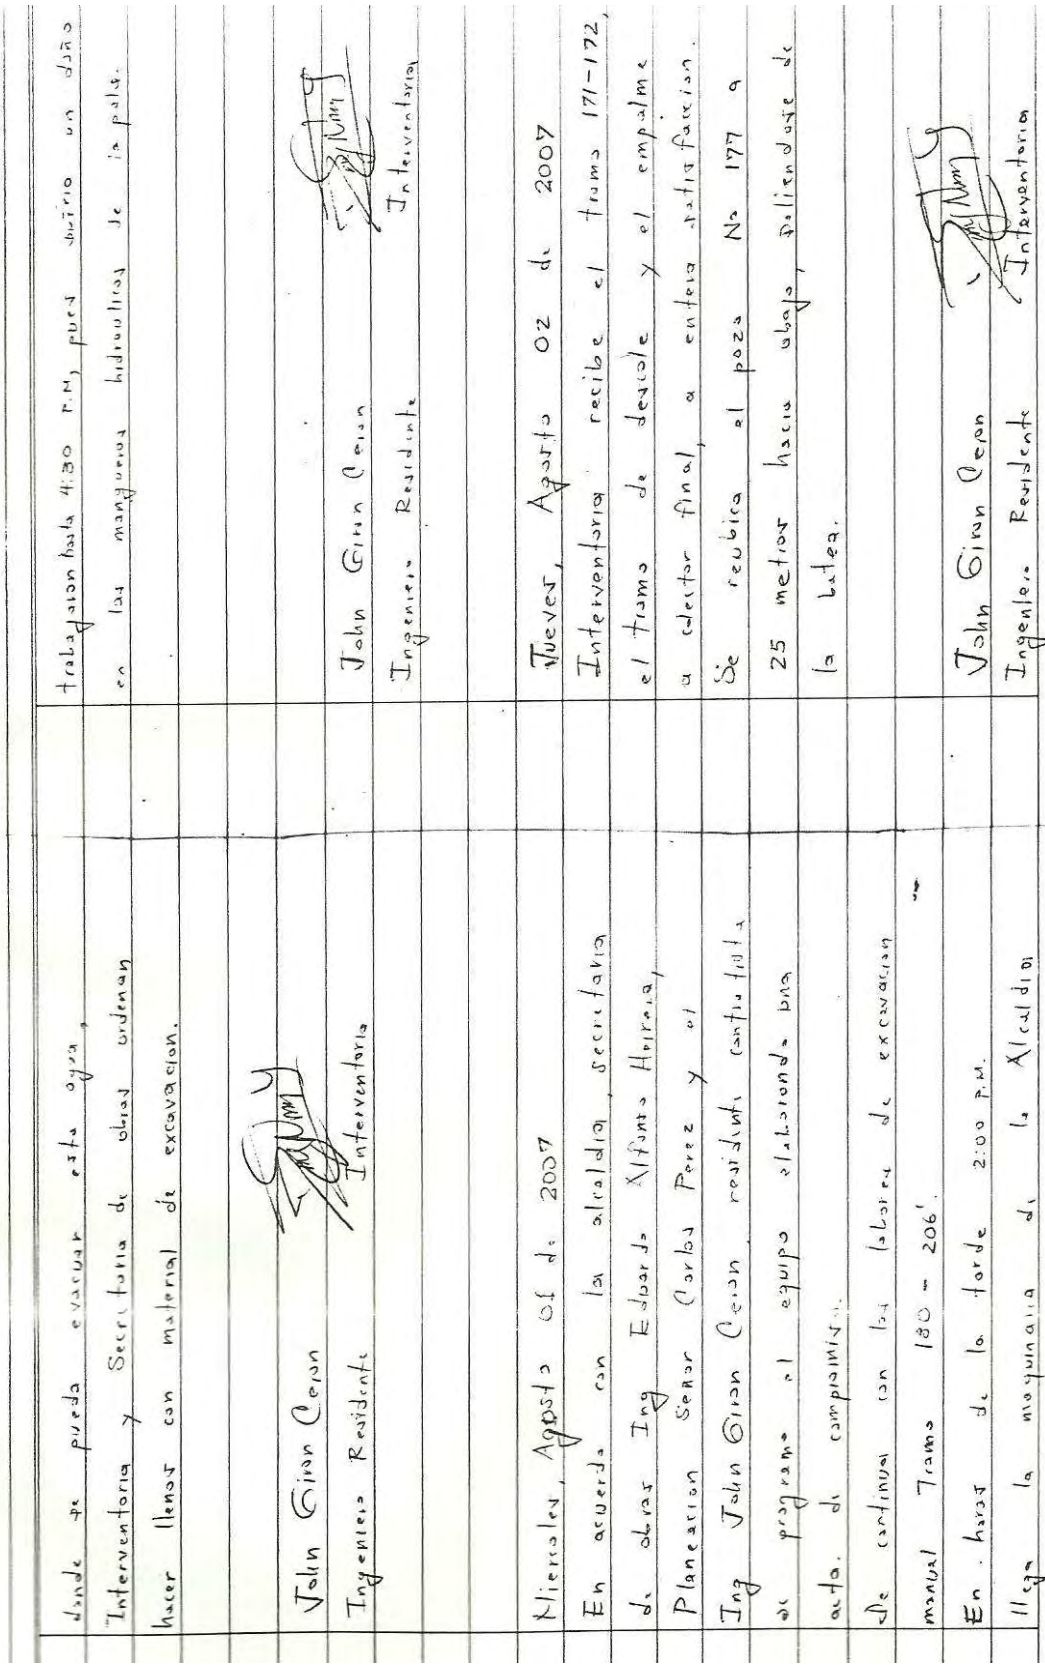 donde se pueda evacuar esta agua,
Interventoria y Secretaria de obras ordenan
hacer llenos con material de excavacion.
John Giron Ceron
Ingeniero Residente Interventoria
Miercoles, Agosto 01 de 2007
En acuerdo con la alcaldia, secretaria
de obras Ing Eduardo Alfonso Herrera,
Planeacion Señor Carlos Perez y el
Ing John Giron Ceron residente contratista
se programo el equipo elaborando una
acta de compromiso.
Se continua con las labores de excavacion
manual Tramo 180 - 206'.
En horas de la tarde 2:00 P.M.
llega la maquinaria de la Alcaldia
trabajaron hasta 4:30 P.M, pues sufrio un daño
en las mangueras hidraulicas de la pala.
John Giron Ceron
Ingeniero Residente Interventoria
Jueves, Agosto 02 de 2007
Interventoria recibe el tramo 171-172,
el tramo de descole y el empalme
a colector final, a entera satisfaccion.
Se reubica el pozo No 177 a
25 metros hacia abajo, saliendose de
la batea.
John Giron Ceron
Ingeniero Residente Interventoria